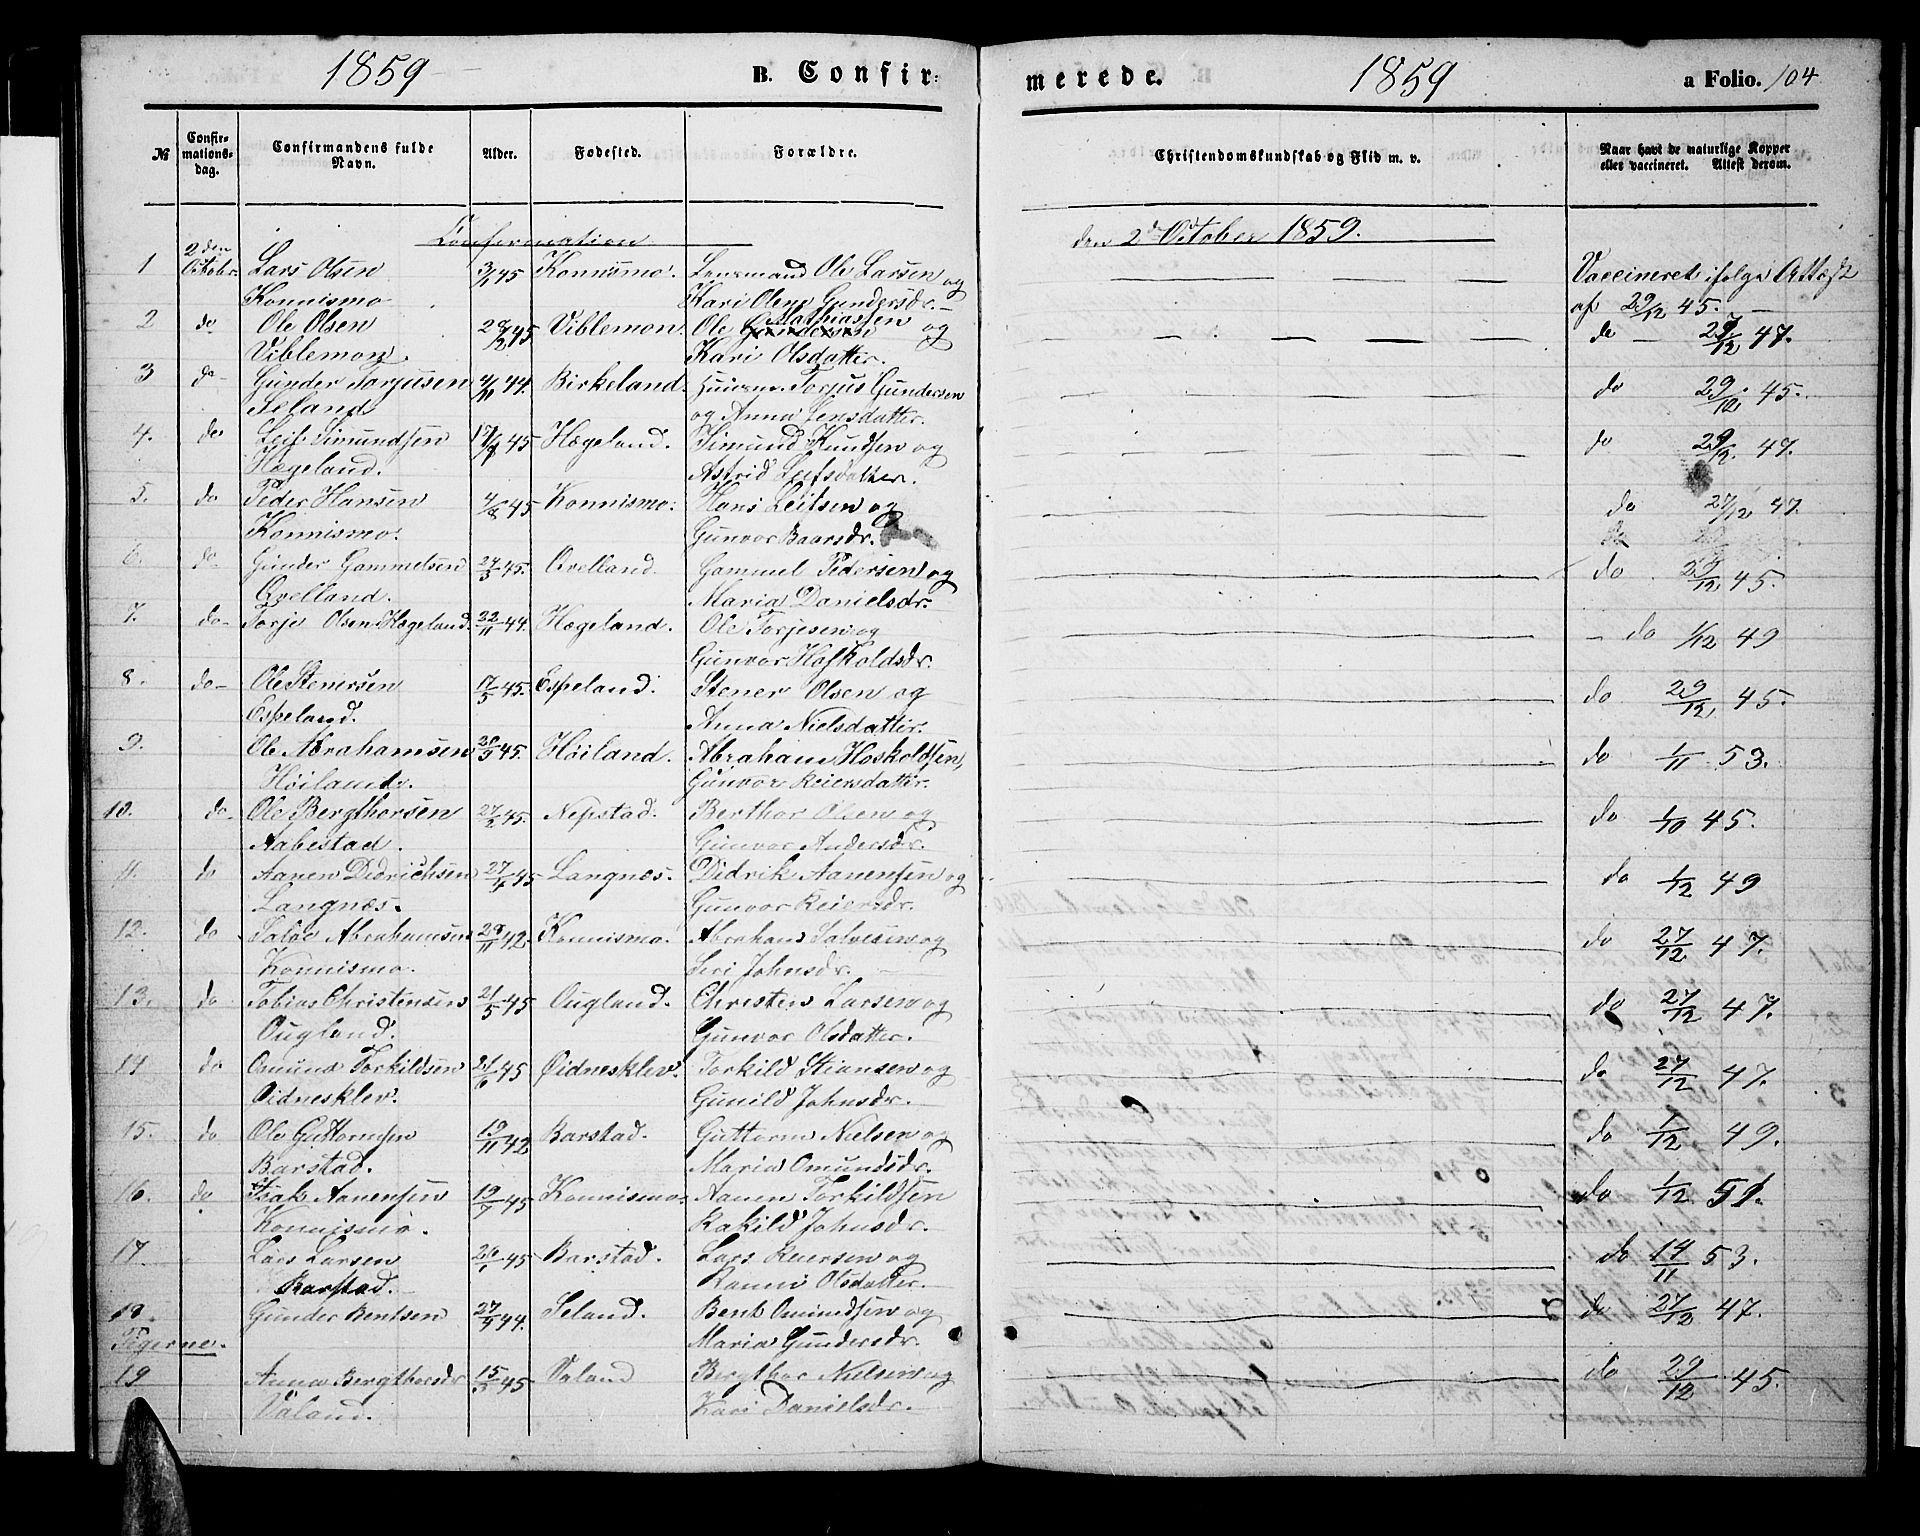 1859
B. Confir-
merede.
1859
a Folio. 104
№
Confir-
mations-
dag.
Confirmandens fulde
Navn.
Alder.
Fødested.
Forældre.
Christendomskundskab og Flid m. v.
Naar havt de naturlige Kopper
eller vaccineret. Attest derom.
Confirmation den 2d October 1859.
1 2den October Lars Olsen 3/1 45 Konnismo. Lensmand Ole Larsen og Vaccineret ifølge Attest
Konnismo Kari Olene Gundersdr. af 29/12 45.
2 do Ole Olsen 28/2 45 Viblemon. Ole Mathiassen og do 27/12 47.
Viblemon. Kari Olsdatter.
3 do Gunder Torjusen 4/11 44. Birkeland. Torjus Gundersen do 29/12 45.
Seland og Anna Jensdatter.
4. do Leif Simundsen 17/7 45 Hægeland. Simund Knudsen og do 29/12 47.
Hægeland. Astrid Leifsdatter.
5. do Peder Hansen 4/8 45 Konnismo. Hans Leitsen og do 27/12 47.
Konnismo. Gunvor Baarsdr.
6. do Gunder Gammelsen 27/3 45. Qvelland. Gammel Pedersen og do 29/12 45.
Qvelland. Maria Danielsdr.
7. do Torje Olsen Hægeland. 22/11 44. Hægeland. Ole Torjesen og do 1/12 49
Gunvor Hofkoldsdr.
8. do Ole Stenersen 17/5 45. Espeland. Stener Olsen og do 29/12 45.
Espeland. Anna Nielsdatter.
9. Ole Abrahamsen 20/9 45. Høiland. Abraham Hoskoldsen, do 1/11 53.
Høiland. Gunvor Reiersdatter.
10. do Ole Bergthorsen 27/2 45. Nepstad. Berthor Olsen og do 1/10 45.
Aabestad. Gunvor Andersdr.
11. do Aanen Didrichsen 27/4 45 Langnæs. Didrik Aanensen og do 1/12 49
Langnæs. Gunvor Reiersdr.
12. do Salve Abrahamsen 28/11 42. Konnismo. Abraham Salvesen og do 27/12 47.
Konnismo. Siri Johnsdr.
13. do Tobias Christensen 21/5 45 Ougland. Christen Larsen og do 27/12 47.
Ougland. Gunvor Olsdatter.
14 do Omund Torkildsen 21/6 45 Øidnesklev. Torkild Stiansen og do 27/12 47.
Øidnesklev. Gunild Johnsdr.
15. do Ole Guttormsen 19/11 42 Barstad. Guttorm Nielsen og do 1/12 49.
Barstad. Maria Omundsdr.
16. do Isak Aanensen 19/7 45 Konnismo Aanen Torkildsen do 1/12 51.
Konnismo. Rakild Johnsdr.
17. Lars Larsen 26/1 45 Barstad. Lars Reiersen og do 14/11 53.
Barstad. Ranni Olsdatter.
18. Gunder Bentsen 27/9 44. Seland. Bent Omundsen og do 27/12 47.
Maria Gundersdr.
Pigerne.
19 Anna Bergthorsdr 15/2 45 Valand Bergthor Nielsen og do 29/12 45.
Valand. Kari Danielsdr.